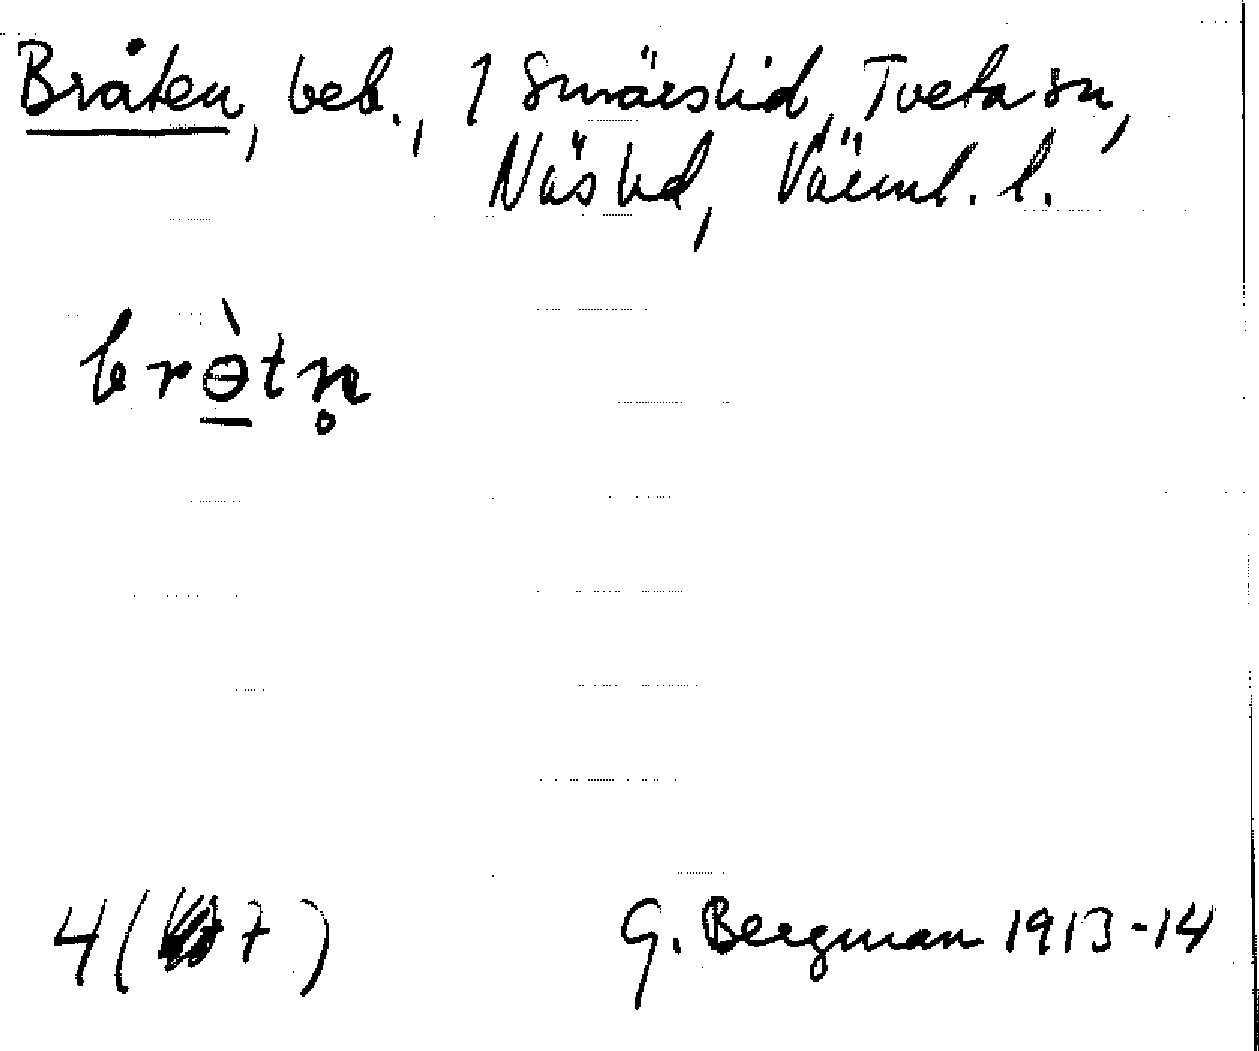 Bråten, beb., 1 Smårstid, Tveta sn,
Näs hd, Värml. l.
brɵ̠̀tn̥
4 (7)
G. Bergman 1913-14